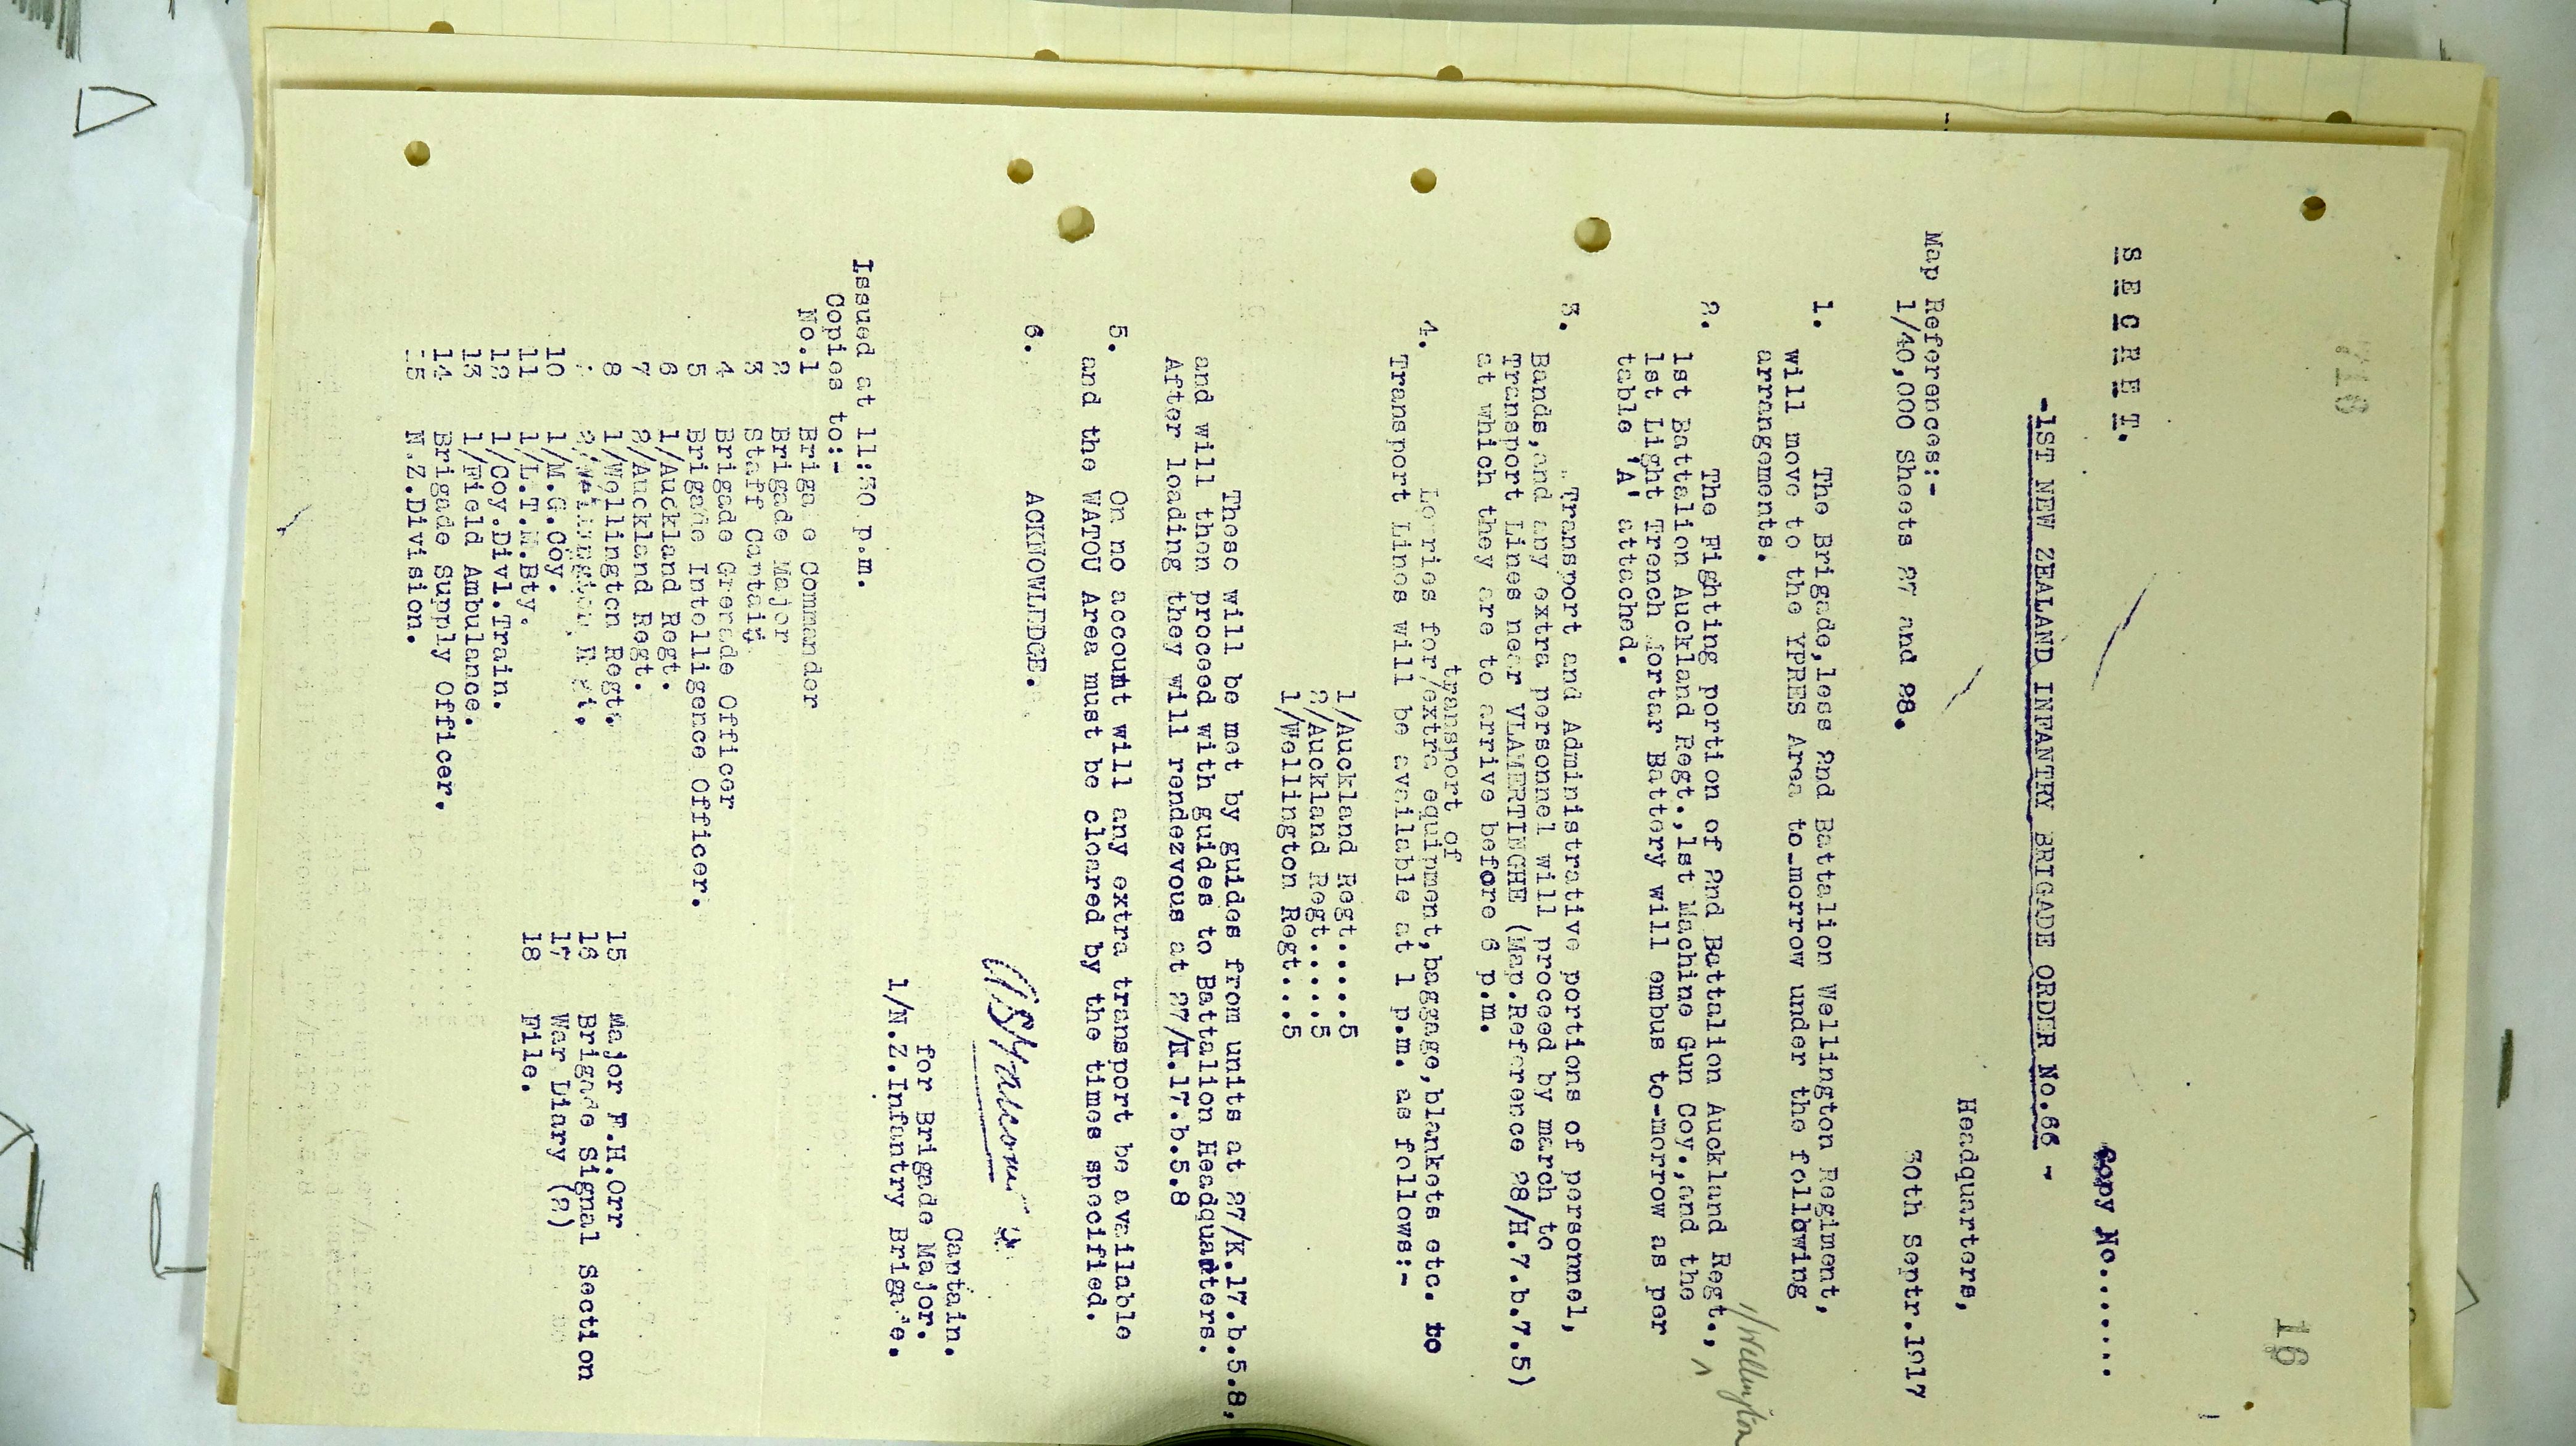 716
16
S E C R E T.
Copy No........
-1ST NEW ZEALAND INFANTRY BRIGADE ORDER No.66 -
Headquarters,
Map References:-
1/40,000 Sheets 27 and 28.
30th Septr.1917
1. The Brigade,less 2nd Battalion Wellington Regiment,
will move to the YPRES Area to-morrow under the following
arrangements.
1/Wellington
2. The Fighting portion of 2nd Battalion Auckland Regt., ^
1st Battalion Auckland Regt.,1st Machine Gun Coy.,and the
1st Light Trench Mortar Battery will embus to-morrow as per
table 'A' attached.
3. Transport and Administrative portions of personnel,
Bands,and any extra personnel will proceed by march to
Transport Lines near VLAMERTINGHE (Map.Reference 28/H.7.b.7.5)
at which they are to arrive before 6 p.m.
transport of
4. Lorries for/extra equipment,baggage,blankets etc. to
Transport Lines will be available at 1 p.m. as follows:-
1/Auckland Regt.....5
2/Auckland Regt.....5
1/Wellington Regt...5
These will be met by guides from units at 27/K.17.b.5.8,
and will then proceed with guides to Battalion Headquarters.
After loading they will rendezvous at 27/K.17.b.5.8
5. On no account will any extra transport be available
and the WATOU Area must be cleared by the times specified.
6. ACKNOWLEDGE.
Captain.
for Brigade Major.
1/N.Z.Infantry Brigade.
Issued at 11:30 p.m.
Copies to:-
No.1 Brigade Commander
2 Brigade Major
3 Staff Captain
4 Brigade Grenade Officer
5 Brigade Intelligence Officer.
6 1/Auckland Regt.
7 2/Auckland Regt.
8 1/Wellington Regt.
2/Wellington
10 1/M.G.Coy.
11 1/L.T.M.Bty.
12 1/Coy.Divl.Train.
13 1/Field Ambulance.
14 Brigade Supply Officer.
15 N.Z.Division.
15 Major F.H.Orr
16 Brigade Signal Section
17 War Diary (2)
18 File.